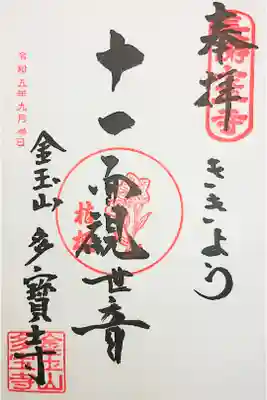 奉拝
ききょう
十一面観世音
桔梗
金玉山 多寳寺
令和五年九月
金玉山
多宝寺